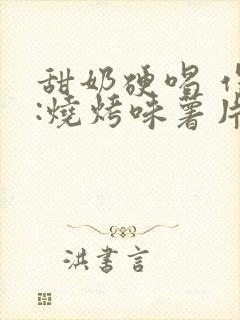 甜奶硬唱
:燒烤味薯片
洪書言